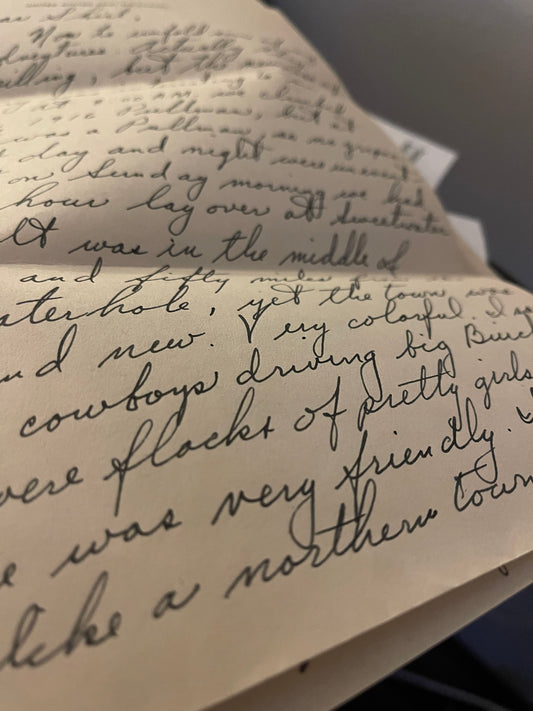 Now to unfold
adventures. Actually
thrilling, but the
1916 Pullman, but at
was a Pullman,
day and night were
on Sunday morning we had
hour lay over at Sweetwater
It was in the middle of
and fifty miles
waterhole, yet the town was
and new. Very colorful. I
cowboys driving big Buick
were flocks of pretty girls
was very friendly.
like a northern town